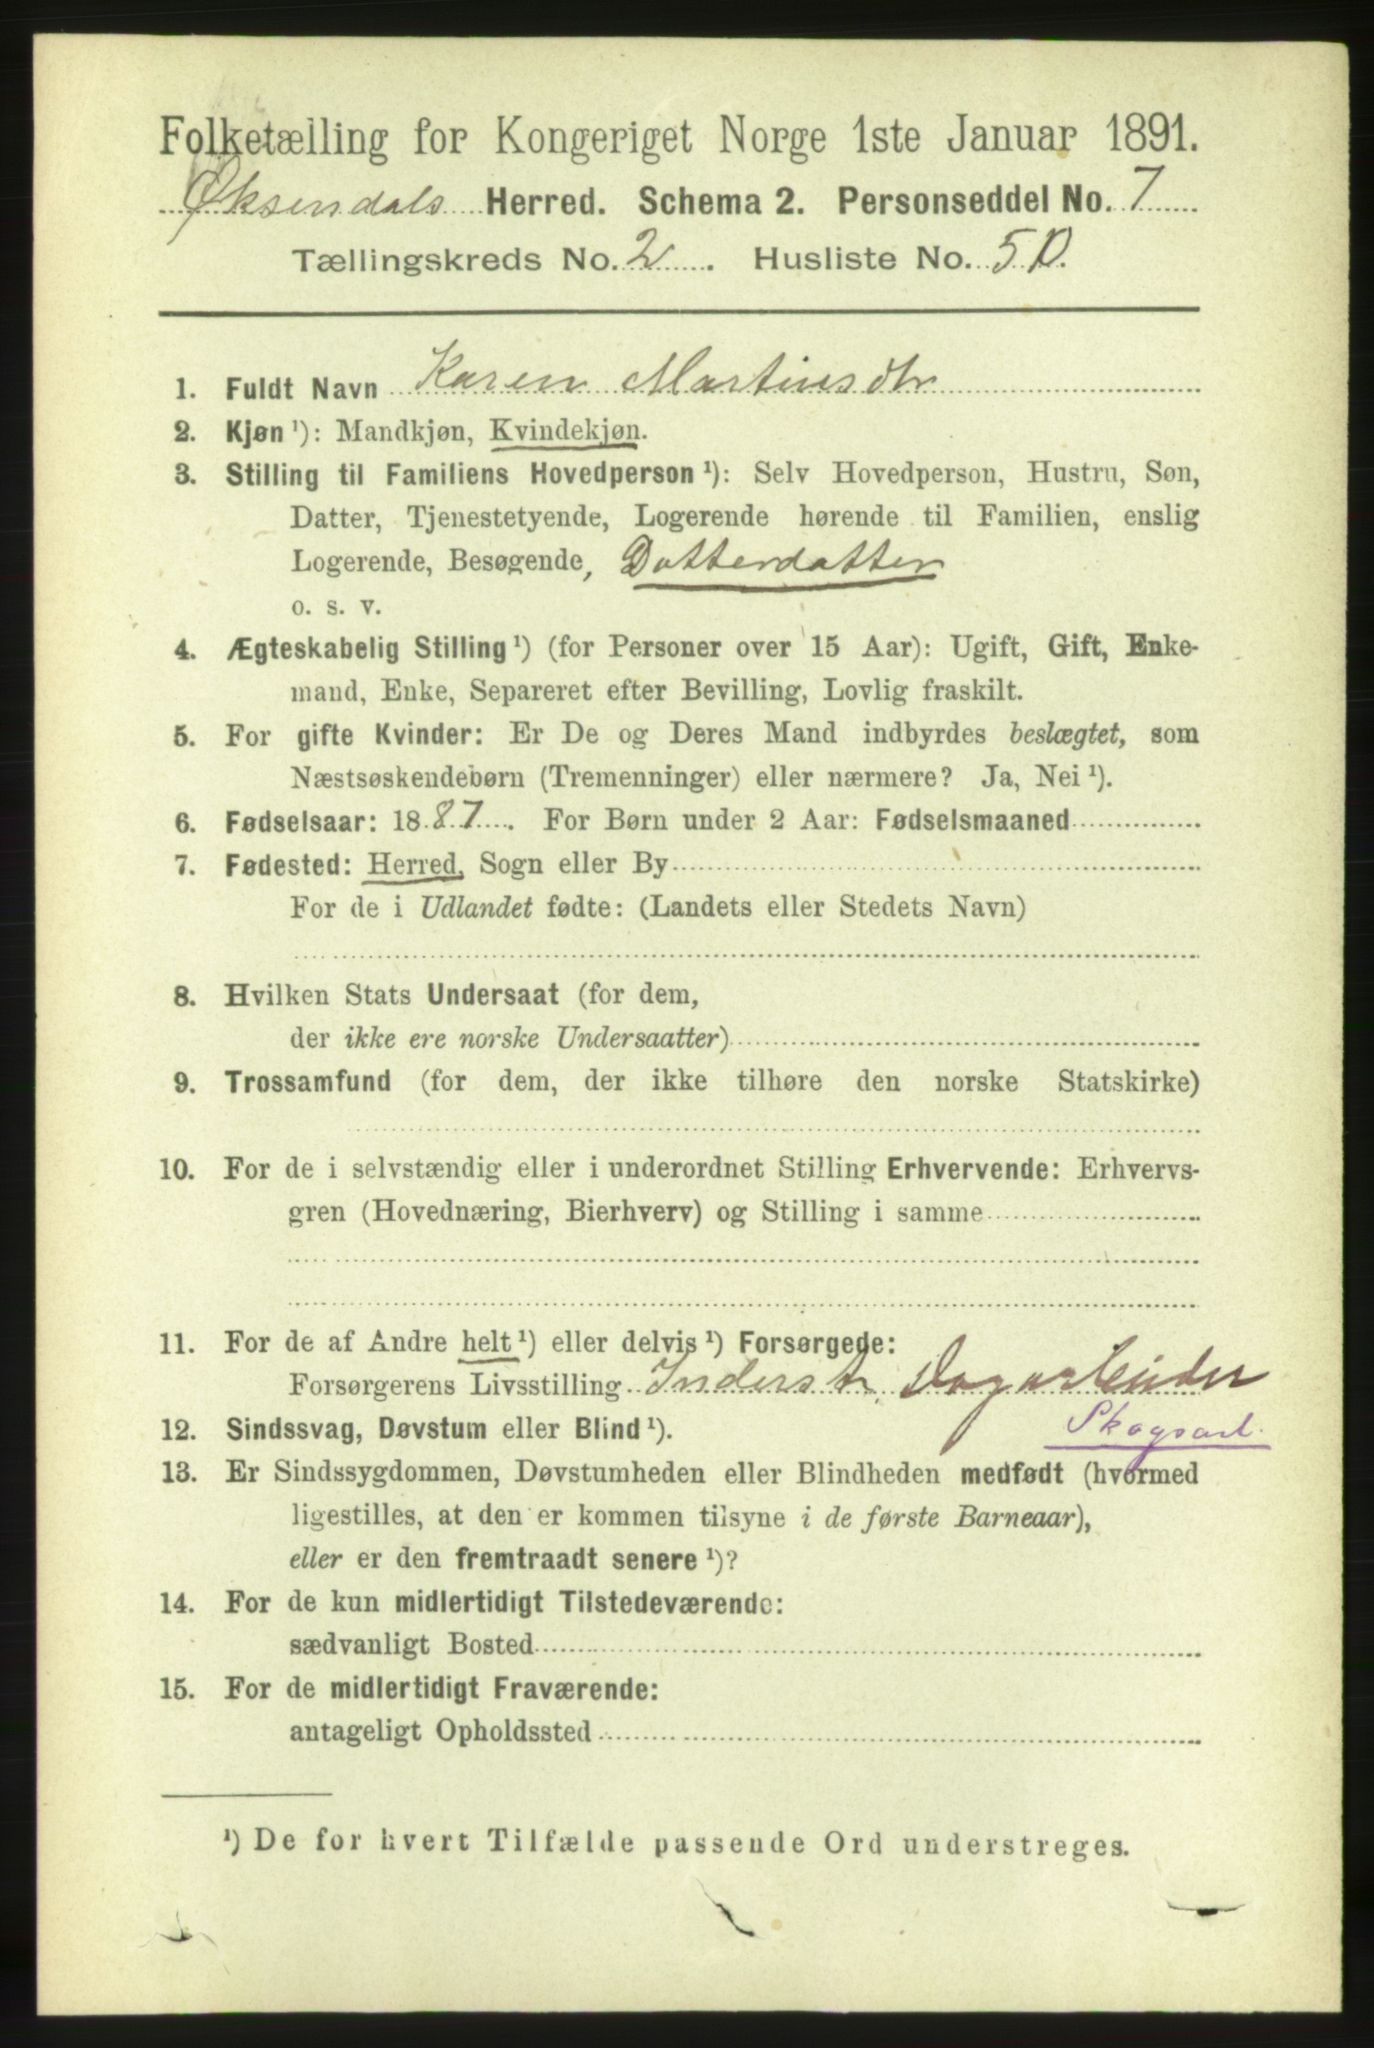 Folketælling for Kongeriget Norge 1ste Januar 1891.
Øksendals Herred. Schema 2. Personseddel No. 7
Tællingskreds No. 2. Husliste No. 50.
1. Fuldt Navn Karen Martinsdtr
2. Kjøn ¹): Mandkjøn, Kvindekjøn.
3. Stilling til Familiens Hovedperson ¹): Selv Hovedperson, Hustru, Søn,
Datter, Tjenestetyende, Logerende hørende til Familien, enslig
Logerende, Besøgende, Datterdatter
o. s. v.
4. Ægteskabelig Stilling ¹) (for Personer over 15 Aar): Ugift, Gift, Enke-
mand, Enke, Separeret efter Bevilling, Lovlig fraskilt.
5. For gifte Kvinder: Er De og Deres Mand indbyrdes beslægtet, som
Næstsøskendebørn (Tremenninger) eller nærmere? Ja, Nei ¹).
6. Fødselsaar: 1887. For Børn under 2 Aar: Fødselsmaaned
7. Fødested: Herred, Sogn eller By
For de i Udlandet fødte: (Landets eller Stedets Navn)
8. Hvilken Stats Undersaat (for dem,
der ikke ere norske Undersaatter)
9. Trossamfund (for dem, der ikke tilhøre den norske Statskirke)
10. For de i selvstændig eller i underordnet Stilling Erhvervende: Erhvervs-
gren (Hovednæring, Bierhverv) og Stilling i samme
11. For de af Andre helt ¹) eller delvis ¹) Forsørgede:
Forsørgerens Livsstilling Inderst, Dagarbeider
12. Sindssvag, Døvstum eller Blind ¹). Skogsarb.
13. Er Sindssygdommen, Døvstumheden eller Blindheden medfødt (hvormed
ligestilles, at den er kommen tilsyne i de første Barneaar),
eller er den fremtraadt senere ¹)?
14. For de kun midlertidigt Tilstedeværende:
sædvanligt Bosted
15. For de midlertidigt Fraværende:
antageligt Opholdssted
¹) De for hvert Tilfælde passende Ord understreges.